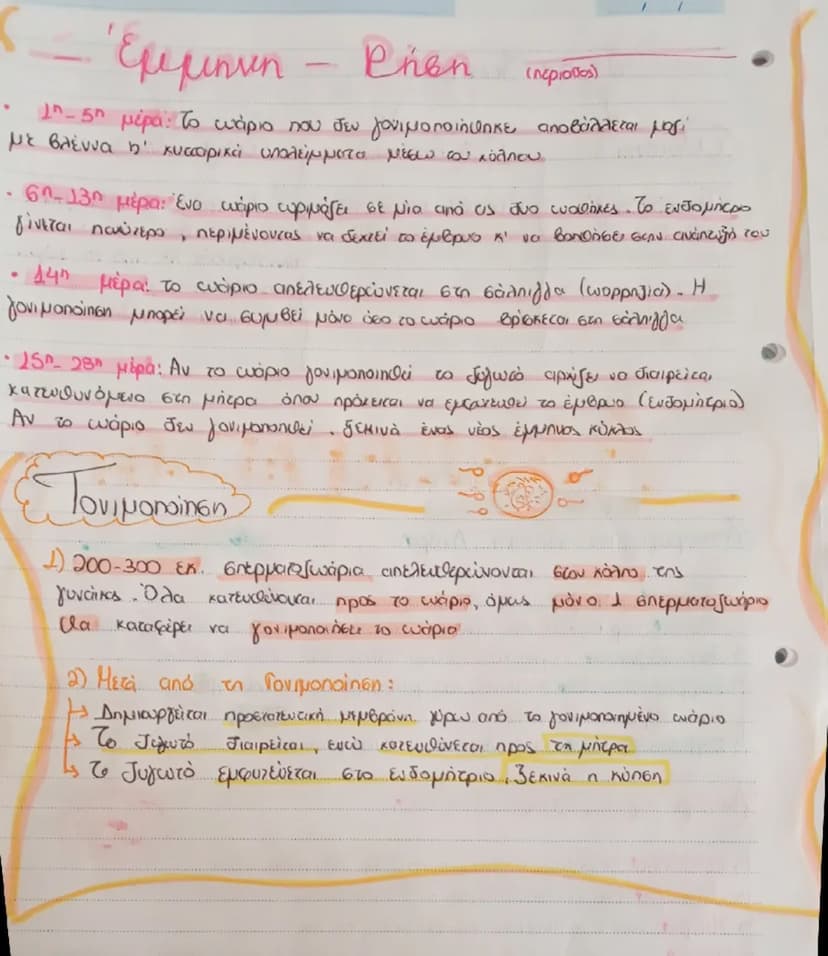 - Έμμηνη - Ρήση (περίοδος)
• 1η-5η μέρα: Το ωάριο που δεν γονιμοποιήθηκε αποβάλλεται μαζί
με βλέννα κ' κυτταρικά υπολείμματα μέσω του κόλπου
• 6η-13η μέρα: Ένα ωάριο ωριμάζει σε μία από τις δυο ωοθήκες. Το ενδομήτριο
γίνεται παχύτερο, περιμένοντας να δεχτεί το έμβρυο κ' να βοηθήσει στην ανάπτυξή του
• 14η μέρα: το ωάριο απελευθερώνεται στη σάλπιγγα (ωορρηξία). Η
γονιμοποίηση μπορεί να συμβεί μόνο όσο το ωάριο βρίσκεται στη σάλπιγγα
• 15η-28η μέρα: Αν το ωάριο γονιμοποιηθεί το ζυγωτό αρχίζει να διαιρείται,
κατευθυνόμενο στη μήτρα όπου πρόκειται να εμφυτευθεί το έμβρυο (ενδομήτριο)
Αν το ωάριο δεν γονιμοποιηθεί, ξεκινά ένας νέος έμμηνος κύκλος
Γονιμοποίηση
1) 200-300 εκ. σπερματοζωάρια απελευθερώνονται στον κόλπο της
γυναίκας. Όλα κατευθύνονται προς το ωάριο, όμως μόνο 1 σπερματοζωάριο
θα καταφέρει να γονιμοποιήσει το ωάριο
2) Μετά από τη Γονιμοποίηση:
↳ Δημιουργείται προστατευτική μεμβράνη γύρω από το γονιμοποιημένο ωάριο
↳ Το ζυγωτό διαιρείται, ενώ κατευθύνεται προς τη μήτρα
↳ Το ζυγωτό εμφυτεύεται στο ενδομήτριο, Ξεκινά η κύηση